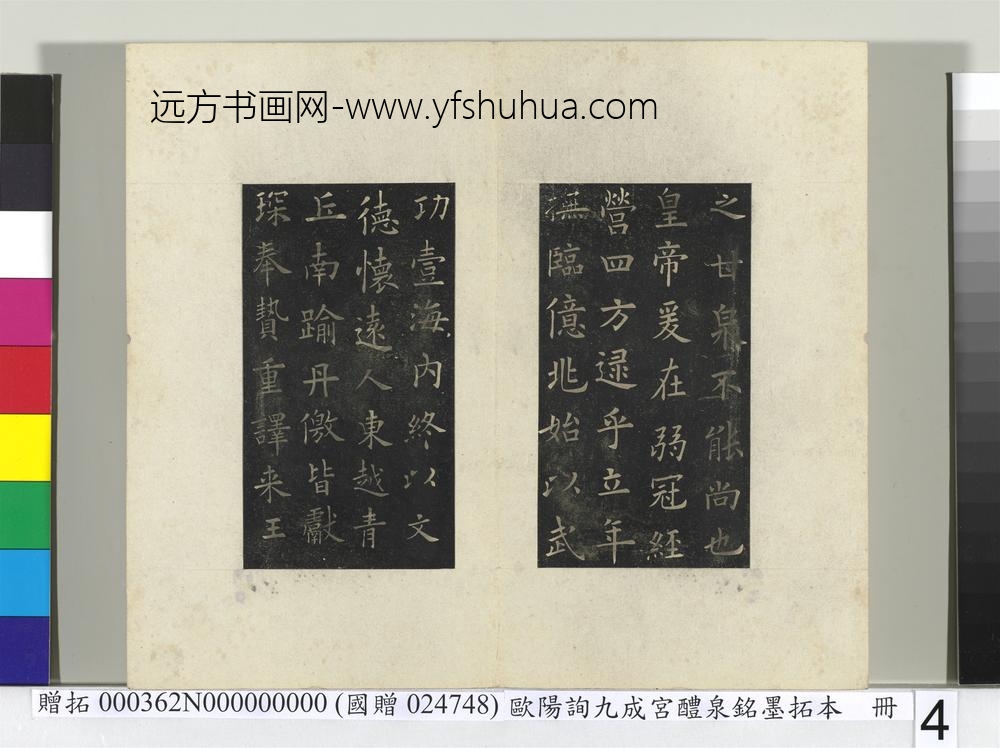 远方书画网-www.yfshuhua.com
之甘泉不能尚也
皇帝爰在弱冠經
營四方逯乎立年
撫臨億兆始以武
功壹海內終以文
德懷遠人東越青
丘南踰丹儌皆獻
琛奉贄重譯来王
贈拓 000362N000000000 (國贈 024748) 歐陽詢九成宮醴泉銘墨拓本 冊
4